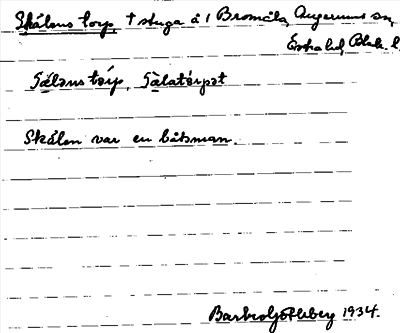 Skålens torp, † stuga å 1 Bromåla, Augerums sn,
Östra hd, Blek. l.
Sålens tårp, Sålatårpet
Skålen var en båtsman.
Barbro Götheberg 1934.